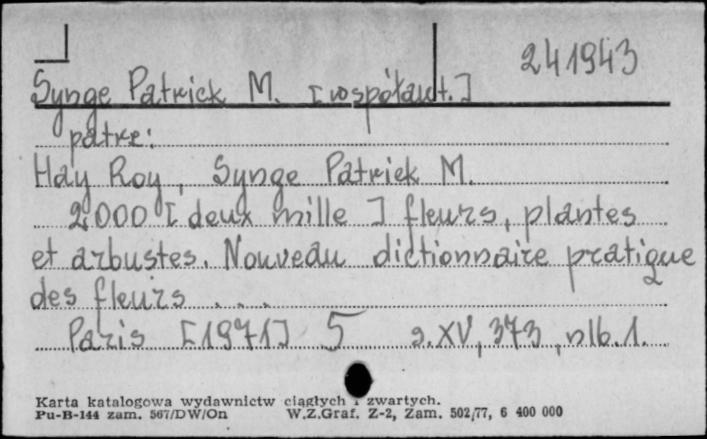 241943
Synge Patrick M. [współaut.]
patrz:
Hay Roy, Synge Patrick M.
2.000 [deux mille] fleurs, plantes
et arbustes. Nouveau dictionnaire pratique
des fleurs ...
Paris [1971] 5 s. XV, 373, nlb. 1.
Karta katalogowa wydawnictw ciągłych i zwartych.
Pu-B-144 zam. 567/DW/On W.Z.Graf. Z-2, Zam. 502/77, 6 400 000